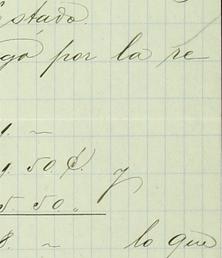 stado.
gó por la re
1. ~
9. 50. ₡. y
5. 50. „
8. ~ lo que